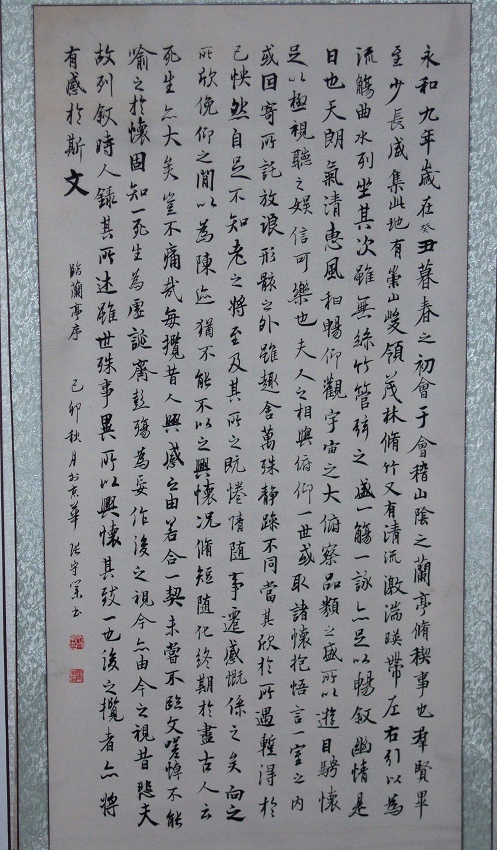 永和九年歲在癸丑暮春之初會于會稽山陰之蘭亭脩稧事也羣賢畢
至少長咸集此地有崇山峻領茂林脩竹又有清流激湍暎帶左右引以為
流觴曲水列坐其次雖無絲竹管弦之盛一觴一詠亦足以暢敘幽情是
日也天朗氣清惠風和暢仰觀宇宙之大俯察品類之盛所以遊目騁懷
足以極視聽之娛信可樂也夫人之相與俯仰一世或取諸懷抱悟言一室之內
或因寄所託放浪形骸之外雖趣舍萬殊靜躁不同當其欣於所遇蹔得於
己怏然自足不知老之將至及其所之既惓情隨事遷感慨係之矣向之
所欣俛仰之間以為陳迹猶不能不以之興懷況脩短隨化終期於盡古人云
死生亦大矣豈不痛哉每攬昔人興感之由若合一契未嘗不臨文嗟悼不能
喻之於懷固知一死生為虛誕齊彭殤為妄作後之視今亦由今之視昔悲夫
故列敘時人錄其所述雖世殊事異所以興懷其致一也後之攬者亦將
有感於斯文
臨蘭亭序 己卯秋月於京華 張守書